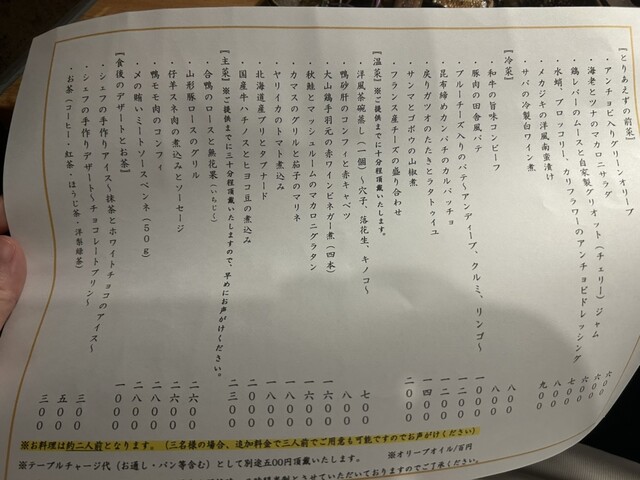 【とりあえずの前菜】
・アンチョビ入りグリーンオリーブ 六〇〇
・海老とツナのマカロニサラダ 六〇〇
・鶏レバーのムースと自家製グリオット(チェリー)ジャム 六〇〇
・水蛸、ブロッコリー、カリフラワーのアンチョビドレッシング 七〇〇
・メカジキの洋風南蛮漬け 八〇〇
・サバの冷製白ワイン煮 九〇〇
【冷菜】
・和牛の旨味コンビーフ 八〇〇
・豚肉の田舎風パテ 八〇〇
・ブルーチーズ入りのパテ～アンディーブ、クルミ、リンゴ～ 一〇〇〇
・昆布締めカンパチのカルパッチョ 一二〇〇
・戻りガツオのたたきとラタトゥイユ 一二〇〇
・サンマとゴボウの山椒煮 一四〇〇
・フランス産チーズの盛り合わせ 二〇〇〇
【温菜】※ご提供までに十分程頂戴いたします。
・洋風茶碗蒸し(一個)～穴子、落花生、キノコ～ 七〇〇
・鴨砂肝のコンフィと赤キャベツ 八〇〇
・大山鶏手羽元の赤ワインビネガー煮(四本) 一六〇〇
・秋鮭とマッシュルームのマカロニグラタン
・カマスのグリルと茄子のマリネ
・ヤリイカのトマト煮込み
・北海道産ブリとタプナード
・国産牛ハチノスとヒヨコ豆の煮込み
【主菜】※ご提供までに三十分程頂戴いたしますので、早めにお声がけください。
・合鴨のロースと無花果(いちじく)
・山形豚ロースのグリル
・仔羊スネ肉の煮込みとソーセージ
・鴨モモ肉のコンフィ 二八〇〇
・〆の賄いミートソースペンネ(50g) 一〇〇〇
【食後のデザートとお茶】
・シェフの手作りアイス～抹茶とホワイトチョコのアイス～ 三〇〇
・シェフの手作りデザート～チョコレートプリン～ 五〇〇
・お茶(コーヒー・紅茶・ほうじ茶・洋梨緑茶) 三〇〇
※お料理は約二人前となります。(三名様の場合、追加料金で三人前でご用意も可能ですのでお声がけください)
※テーブルチャージ代(お通し・パン等含む)として別途五00円頂戴いたします。 ※オリーブオイル/百円